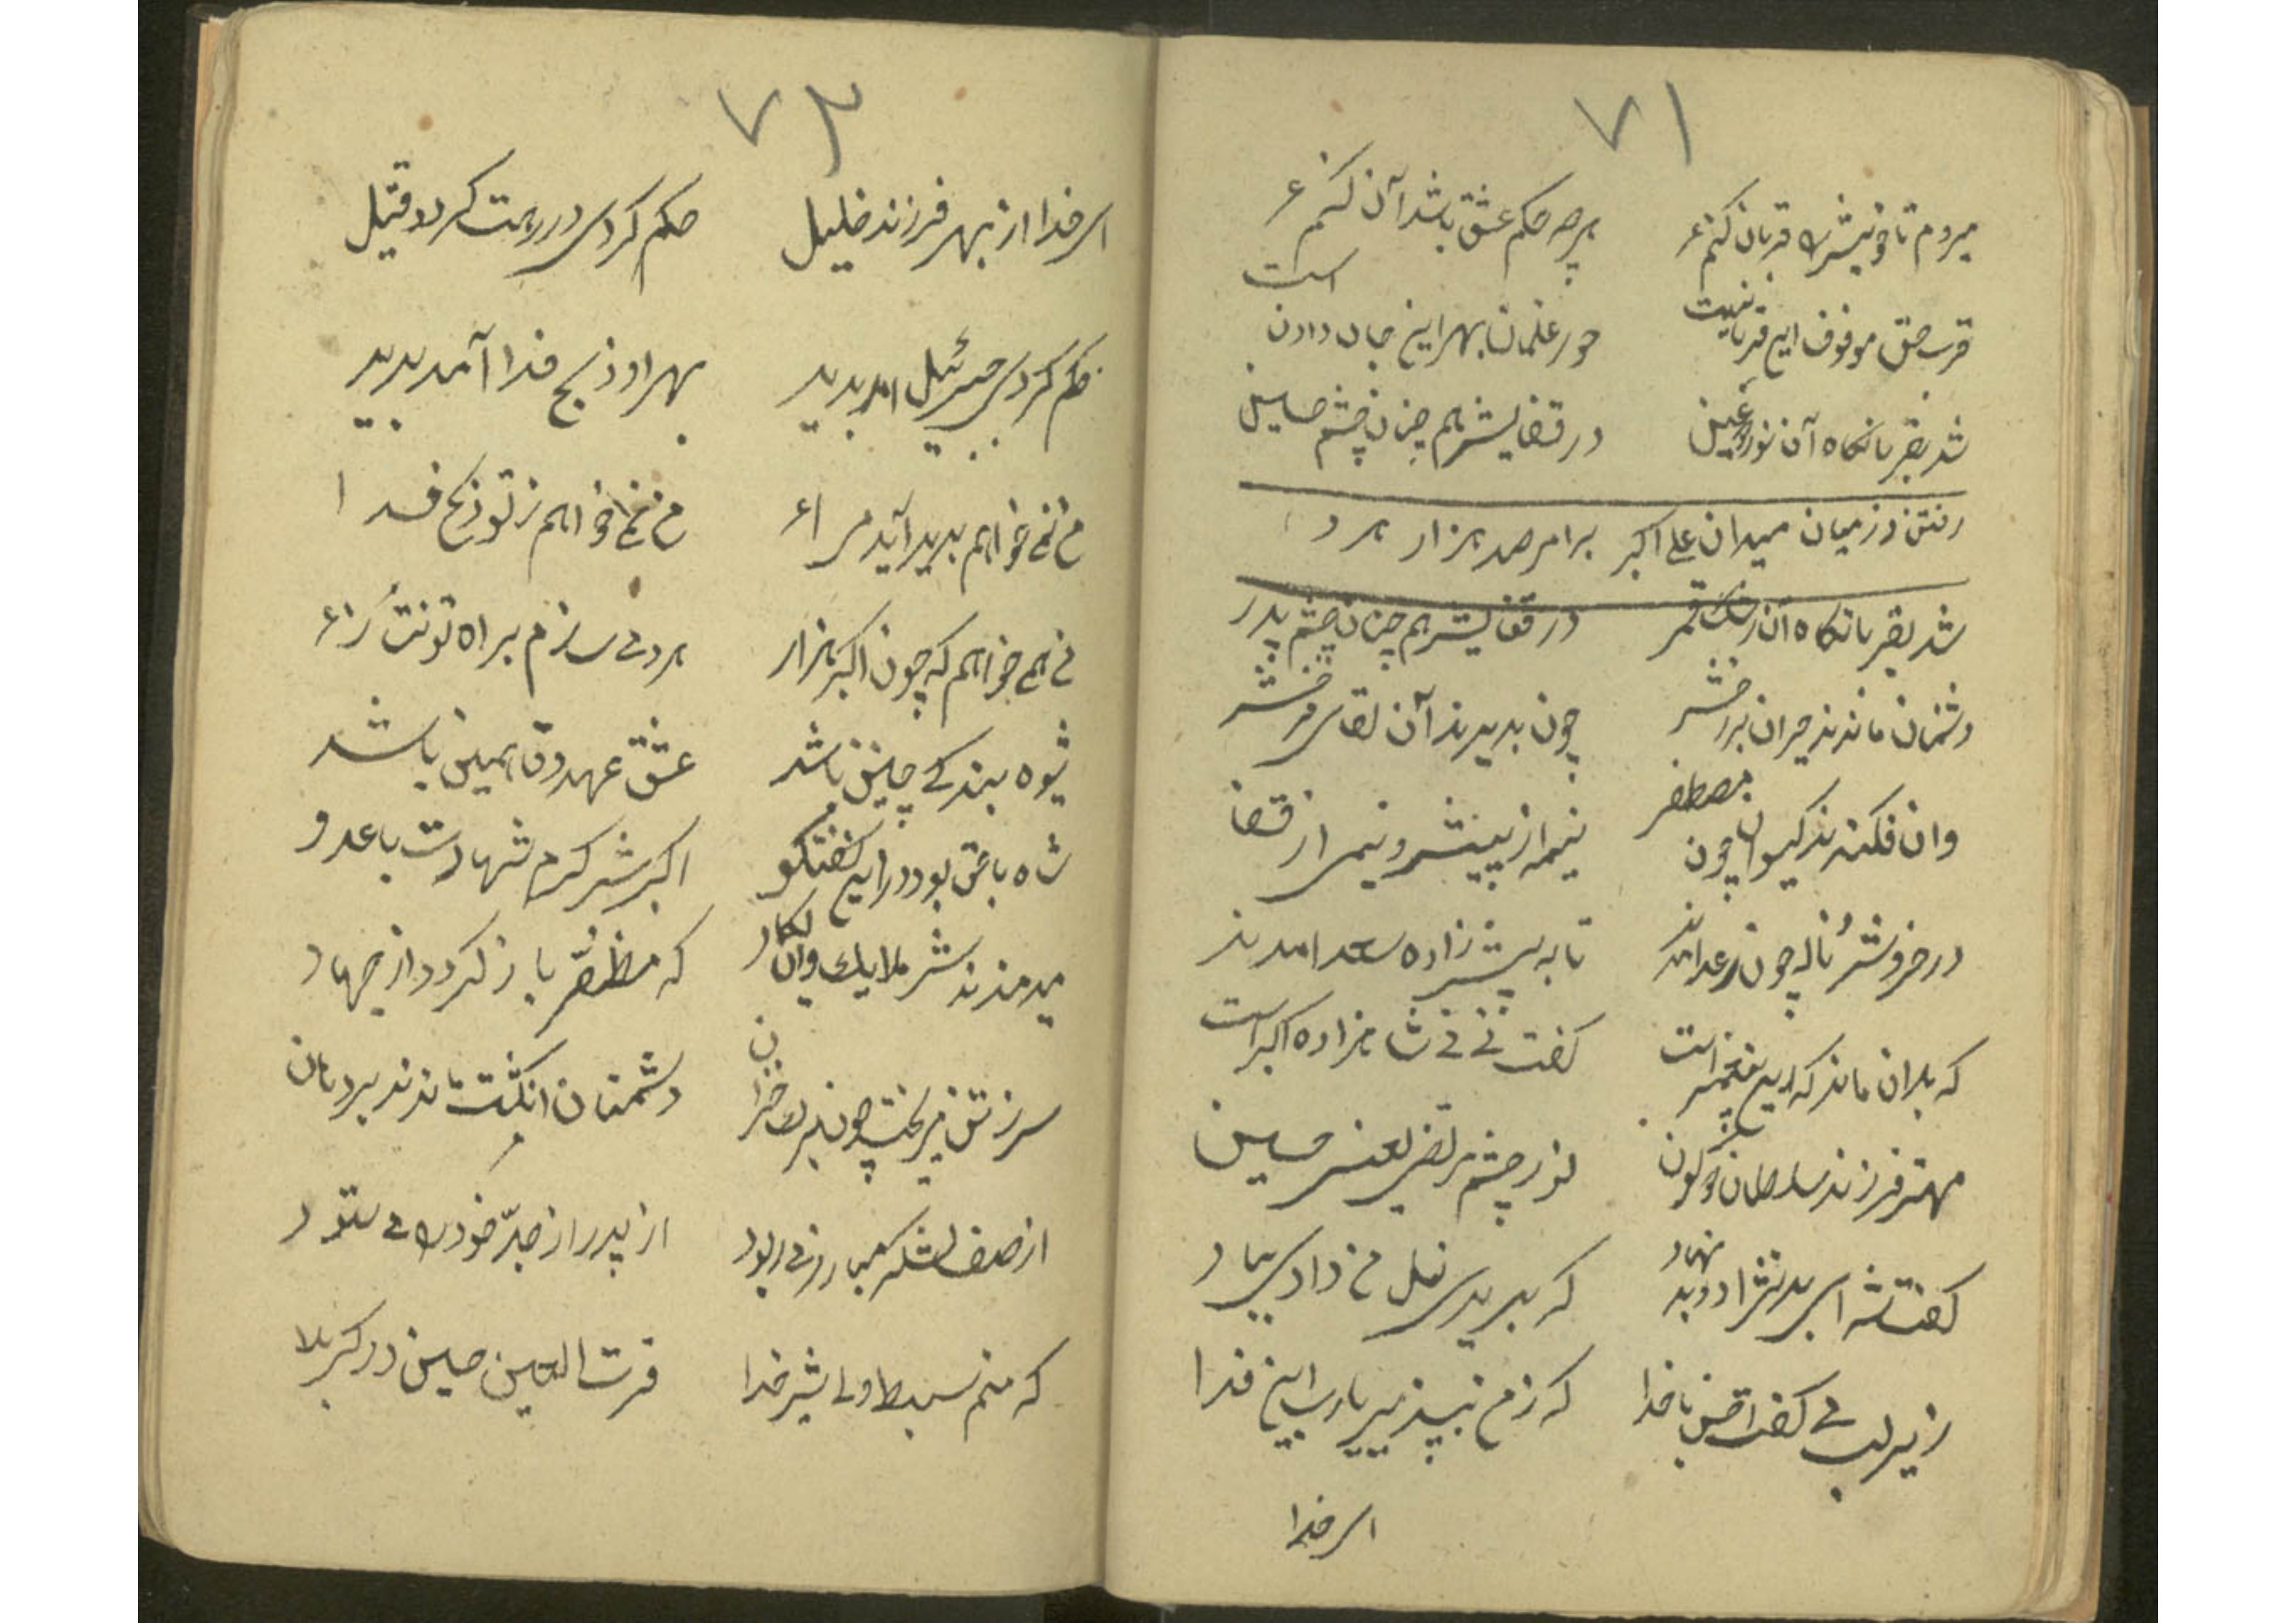 ۷۱
میروم تا خویش را قربان کنم ع هرچه حکم عشق باشد آن کنم ع
قرب حق موقوف این قربانیست حور غلمان بهر این جان دادن است
شد بقربانگاه آن نور عین در قضایش هم چنان چشم حسین
رفتن در زمیان میدان علی اکبر برابر صد هزار مرد
شد بقربانگاه آن رشک قمر در قفایش هم چنان چشم پدر
دشمنان ماندند حیران بر رخش چون بدیدند آن لقای فرخش
وان فکنده گیسوان چون مصطفی نیم از پیش و نیمی از قضا
در خروش ناله چون رعد آمدند تا به پیش زاده سعد امدند
که بدان ماند که این پیغمبر است گفت نی نی شاهزاده اکبر است
مهتر فرزند سلطان دو کون نور چشم مرتضی یعنی حسین
گفت شه ای بد نژاد و بد نهاد که بریدی نسل من دادی بباد
زیر لب می گفت با خدا که ز من بپذیر یارب این فدا
ای خدا
۷۲
ای خدا از بهر فرزند خلیل حکم کردی در رهت گردد قتیل
حکم کردی جبرئیل امد پدید بهر او ذبح فدا آمد پدید
من نمی خواهم پدید آید مرا ع من نمی خواهم ز تو ذبح فدا
من همی خواهم که چون اکبر هزار هر دمی سازم براه تو نثار ع
شیوه بندگی چنین باشد عشق عهد وق همین باشد
شاه با حق بود در این گفتگو اکبرش گرم شهادت با عدو
میدمندند ش ملایک وان یکاد که مظفر باز گردد از جهاد
سر ز تن میریخت چون برگ خزان دشمنان انگشت ماندند بر دهان
از صف لشکر مبارز می ربود از پدر از جد خود را می ستود
که منم سبط ولی شیر خدا قرت العین حسین در کربلا